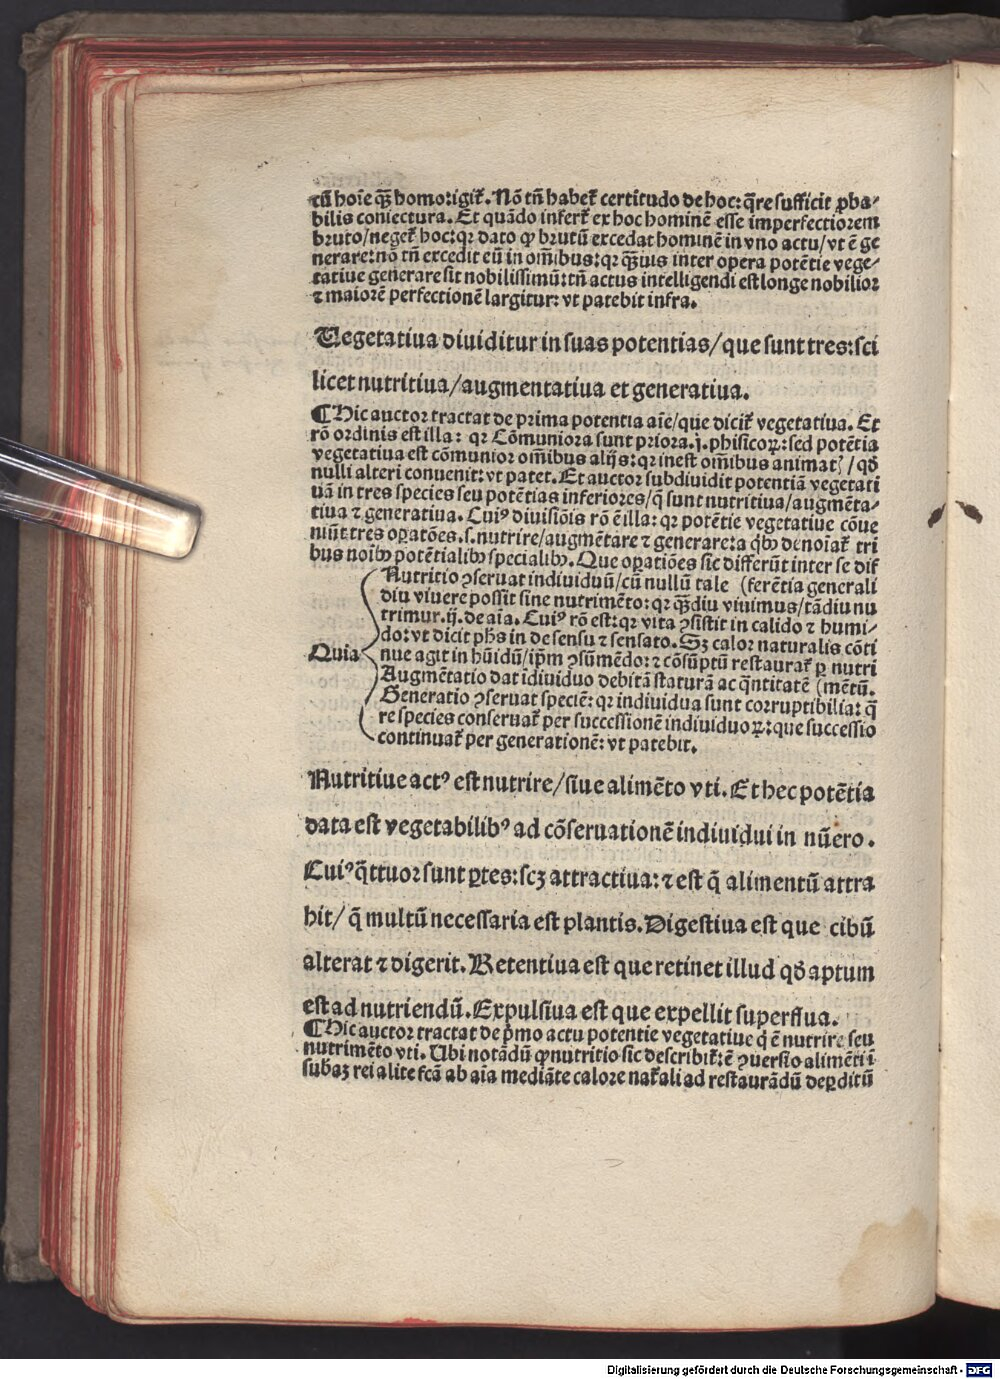 tũ hoīe q̄ꝫ homo:igit̄. Nō tñ habet̄ certitudo de hoc:q̄re sufficit ꝓba⸗
bilis coniectura. Et quādo infert̄ ex hoc hominē esse imperfectiorem
bruto/neget̄ hoc:qꝛ dato ꝙ brutū excedat hominē in vno actu/vt ē ge
nerare:nō tñ excedit eū in om̄ibus:qꝛ q̄ꝫuis inter opera potētie vege⸗
tatiue generare sit nobilissimū:tñ actus intelligendi est longe nobilior
⁊ maiorē perfectionē largitur: vt patebit infra.
Vegetatiua diuiditur in suas potentias/que sunt tres:sci
licet nutritiua/augmentatiua et generatiua.
¶Hic auctor tractat de prima potentia aīe/que dicit̄ vegetatiua. Et
rō ordinis est illa: qꝛ Cōmuniora sunt priora.j.phisicoꝝ:sed potētia
vegetatiua est cōmunior om̄ibus alijs:qꝛ inest om̄ibus animat?/qđ
nulli alteri conuenit:vt patet. Et auctor subdiuidit potentiā vegetati
uā in tres species seu potētias inferiores/q̄ sunt nutritiua/augmēta⸗
tiua ⁊ generatiua. Cuiꝰ diuisiōis rō ē illa: qꝛ potētie vegetatiue cōue
niūt tres oꝑatōes.s.nutrire/augmētare ⁊ generare:a qͥbꝰ denoīat̄ tri
bus noībꝰ potētialibꝰ specialibꝰ. Que oꝑatiōes sic differūt inter se dif
Nutritio ꝯseruat indiuiduū/cū nullū tale (ferētia generali
diu viuere possit sine nutrimēto:qꝛ q̄ꝫdiu viuimus/tādiu nu
trimur.ij.de aīa. Cuiꝰ rō est:qꝛ vita ꝯsistit in calido ⁊ humi⸗
do:vt dicit ph̄s in de sensu ⁊ sensato. Sꝫ calor naturalis cōti
Quia nue agit in hūidū/ip̄m ꝯsūmēdo:⁊ cōsūptū restaurat̄ ꝑ nutri
Augmētatio dat īdiuiduo debitā staturā ac q̄ntitatē (mētū.
Generatio ꝯseruat speciē:qꝛ indiuidua sunt corruptibilia: q̄
re species conseruat̄ per successionē indiuiduoꝝ:que successio
continuat̄ per generationē: vt patebit.
Nutritiue actꝰ est nutrire/siue alimēto vti. Et hec potētia
data est vegetabilibꝰ ad cōseruationē indiuidui in nūero.
Cuiꝰ q̄ttuor sunt ꝑtes:scꝫ attractiua:⁊ est q̄ alimentū attra
hit/ q̄ multū necessaria est plantis. Digestiua est que cibū
alterat ⁊ digerit. Retentiua est que retinet illud qđ aptum
est ad nutriendū. Expulsiua est que expellit superflua.
¶Hic auctor tractat de pͥmo actu potentie vegetatiue qͥ ē nutrire seu
nutrimēto vti. Ubi notādū ꝙ nutritio sic describit̄:ē ꝯuersio alimēti ī
subaꝫ rei alite fcā ab aīa mediāte calore nat̄ali ad restaurādū deꝑditū
Digitalisierung gefördert durch die Deutsche Forschungsgemeinschaft - DFG